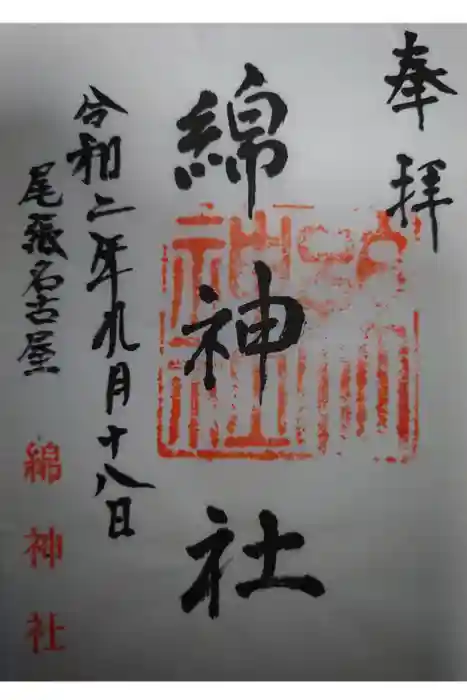 奉拝
綿神社
令和二年九月十八日
尾張名古屋
綿神社